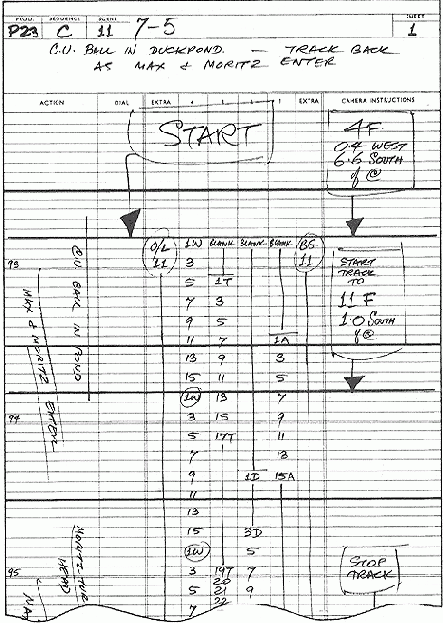 PROD. SEQUENCE SCENE SHEET
P23 C 11 7-5 1
C.U. BALL IN DUCKPOND — TRACK BACK
AS MAX & MORITZ ENTER
ACTION DIAL EXTRA 4 3 2 1 EXTRA CAMERA INSTRUCTIONS
START
4F
0.4 WEST
6.6 SOUTH
of @
O/L 1W BLANK BLANK BLANK BS
11 11
93 3
5 1T
7 3
9 5
11 7 1A
13 9 3
15 11 5
1W 13 7
94 3 15 9
5 17T 11
7 13
9 1D 15A
11
13
15 3D
1W 5
95 3 19T 7
20
5 21 9
22
7
C.U. BALL IN POND
MAX & MORITZ ENTER
MORITZ TUR
HEAD
START
TRACK
TO
11F
1.0 SOUTH
of @
STOP
TRACK